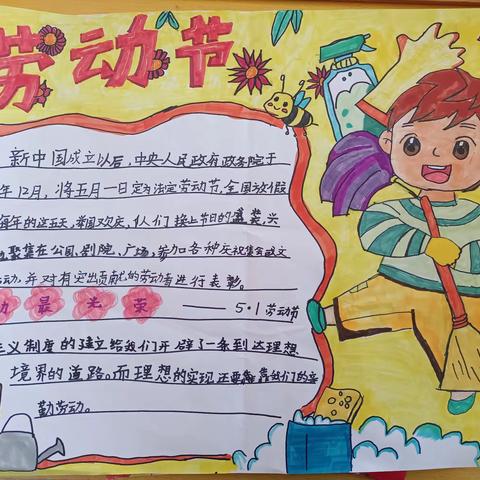 劳动节
新中国成立以后,中央人民政府政务院于
年12月,将五月一日定为法定劳动节,全国放假
每年的这五天,举国欢庆,人们换上节日的盛装,兴
聚集在公园、剧院、广场,参加各种庆祝集会或文
活动,并对有突出贡献的劳动者进行表彰。
动最光荣 —— 5·1劳动节
主义制度的建立给我们开辟了一条到达理想
境界的道路。而理想的实现还要靠我们的辛
勤劳动。